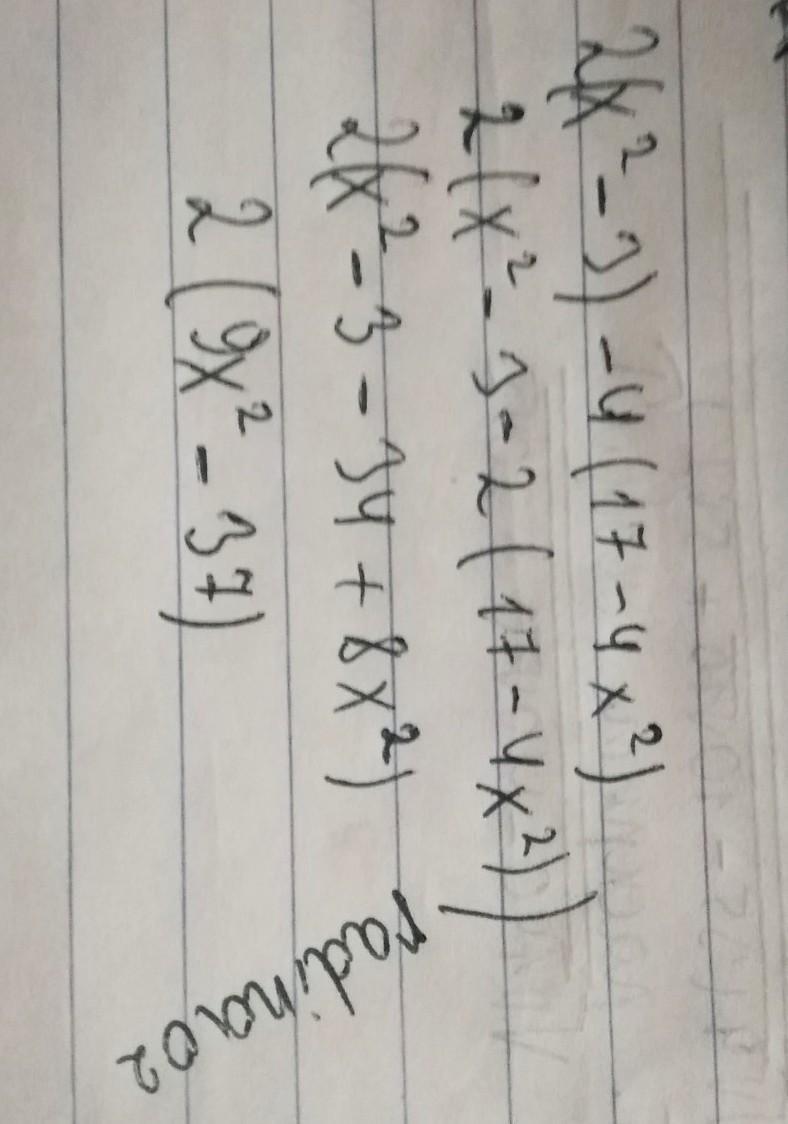 2(x² - 3) - 4(17 - 4x²)
2(x² - 3 - 2(17 - 4x²))
2(x² - 3 - 34 + 8x²)
2(9x² - 37)
radinao2